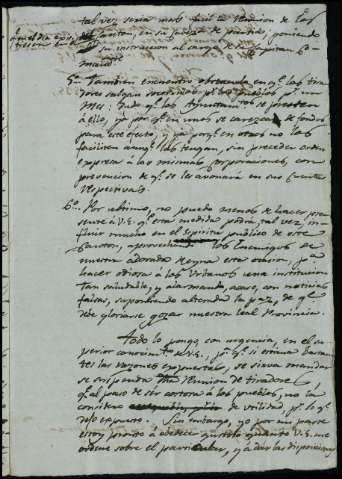 tal vez, seria mas facil la reunion de los
en su
su instruccion al cargo de
mand
5ª También encuentro en qe. los tira-
dores salgan pr. los Pueblos pr. un
mes: Dudo qe. los Ayuntamtos. se presten
á ello, ya por qe. en unos se carezca de fondos
para este efecto, y ya porqe. en otros no los
faciliten aunqe. los tengan, sin preceder orden
expresa á las mismas corporaciones, con
prevencion de qe. se les abonará en sus cuentas
respectivas.
6ª Por ultimo, no puedo menos de hacer pre-
sente á V.E. qe. esta medida podrá, tal vez, in-
fluir mucho en el espiritu publico de este
Canton, aprovechando los Enemigos de
nuestra adorada Reyna esta ocasion, pa.
hacer odiosa á los Urbanos una institucion
tan saludable, y alarmando, acaso, con noticias
falsas, suponiendo alterada la paz, de qe.
debe gloriarse gozar nuestra leal Provincia.
Todo lo pongo con urgencia, en el su-
perior conocimto. de V.E., pa. qe. si estima bastan-
tes las razones expuestas, se sirva mandar
se suspenda la reunion de tiradores,
qe. al paso de ser costosa á los pueblos, no la
considero de utilidad, pr. lo qe.
llebo expuesto. Sin embargo, yo por mi parte
estoy pronto á obedecer gustoso quanto V.E. me
ordene sobre el particular, y á dar las disposiciones